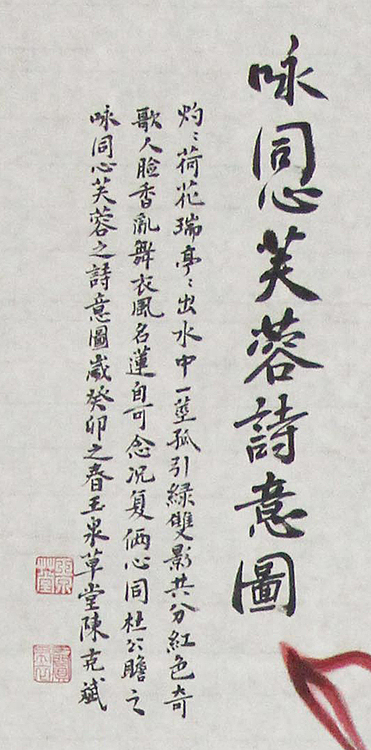 咏同心芙蓉詩意圖
灼〻荷花瑞亭〻出水中一莖孤引綠雙影共分紅色奇
歌人臉香亂舞衣風名蓮自可念况复俩心同杜公瞻之
咏同心芙蓉之詩意圖歲癸卯之春玉泉草堂陳克斌